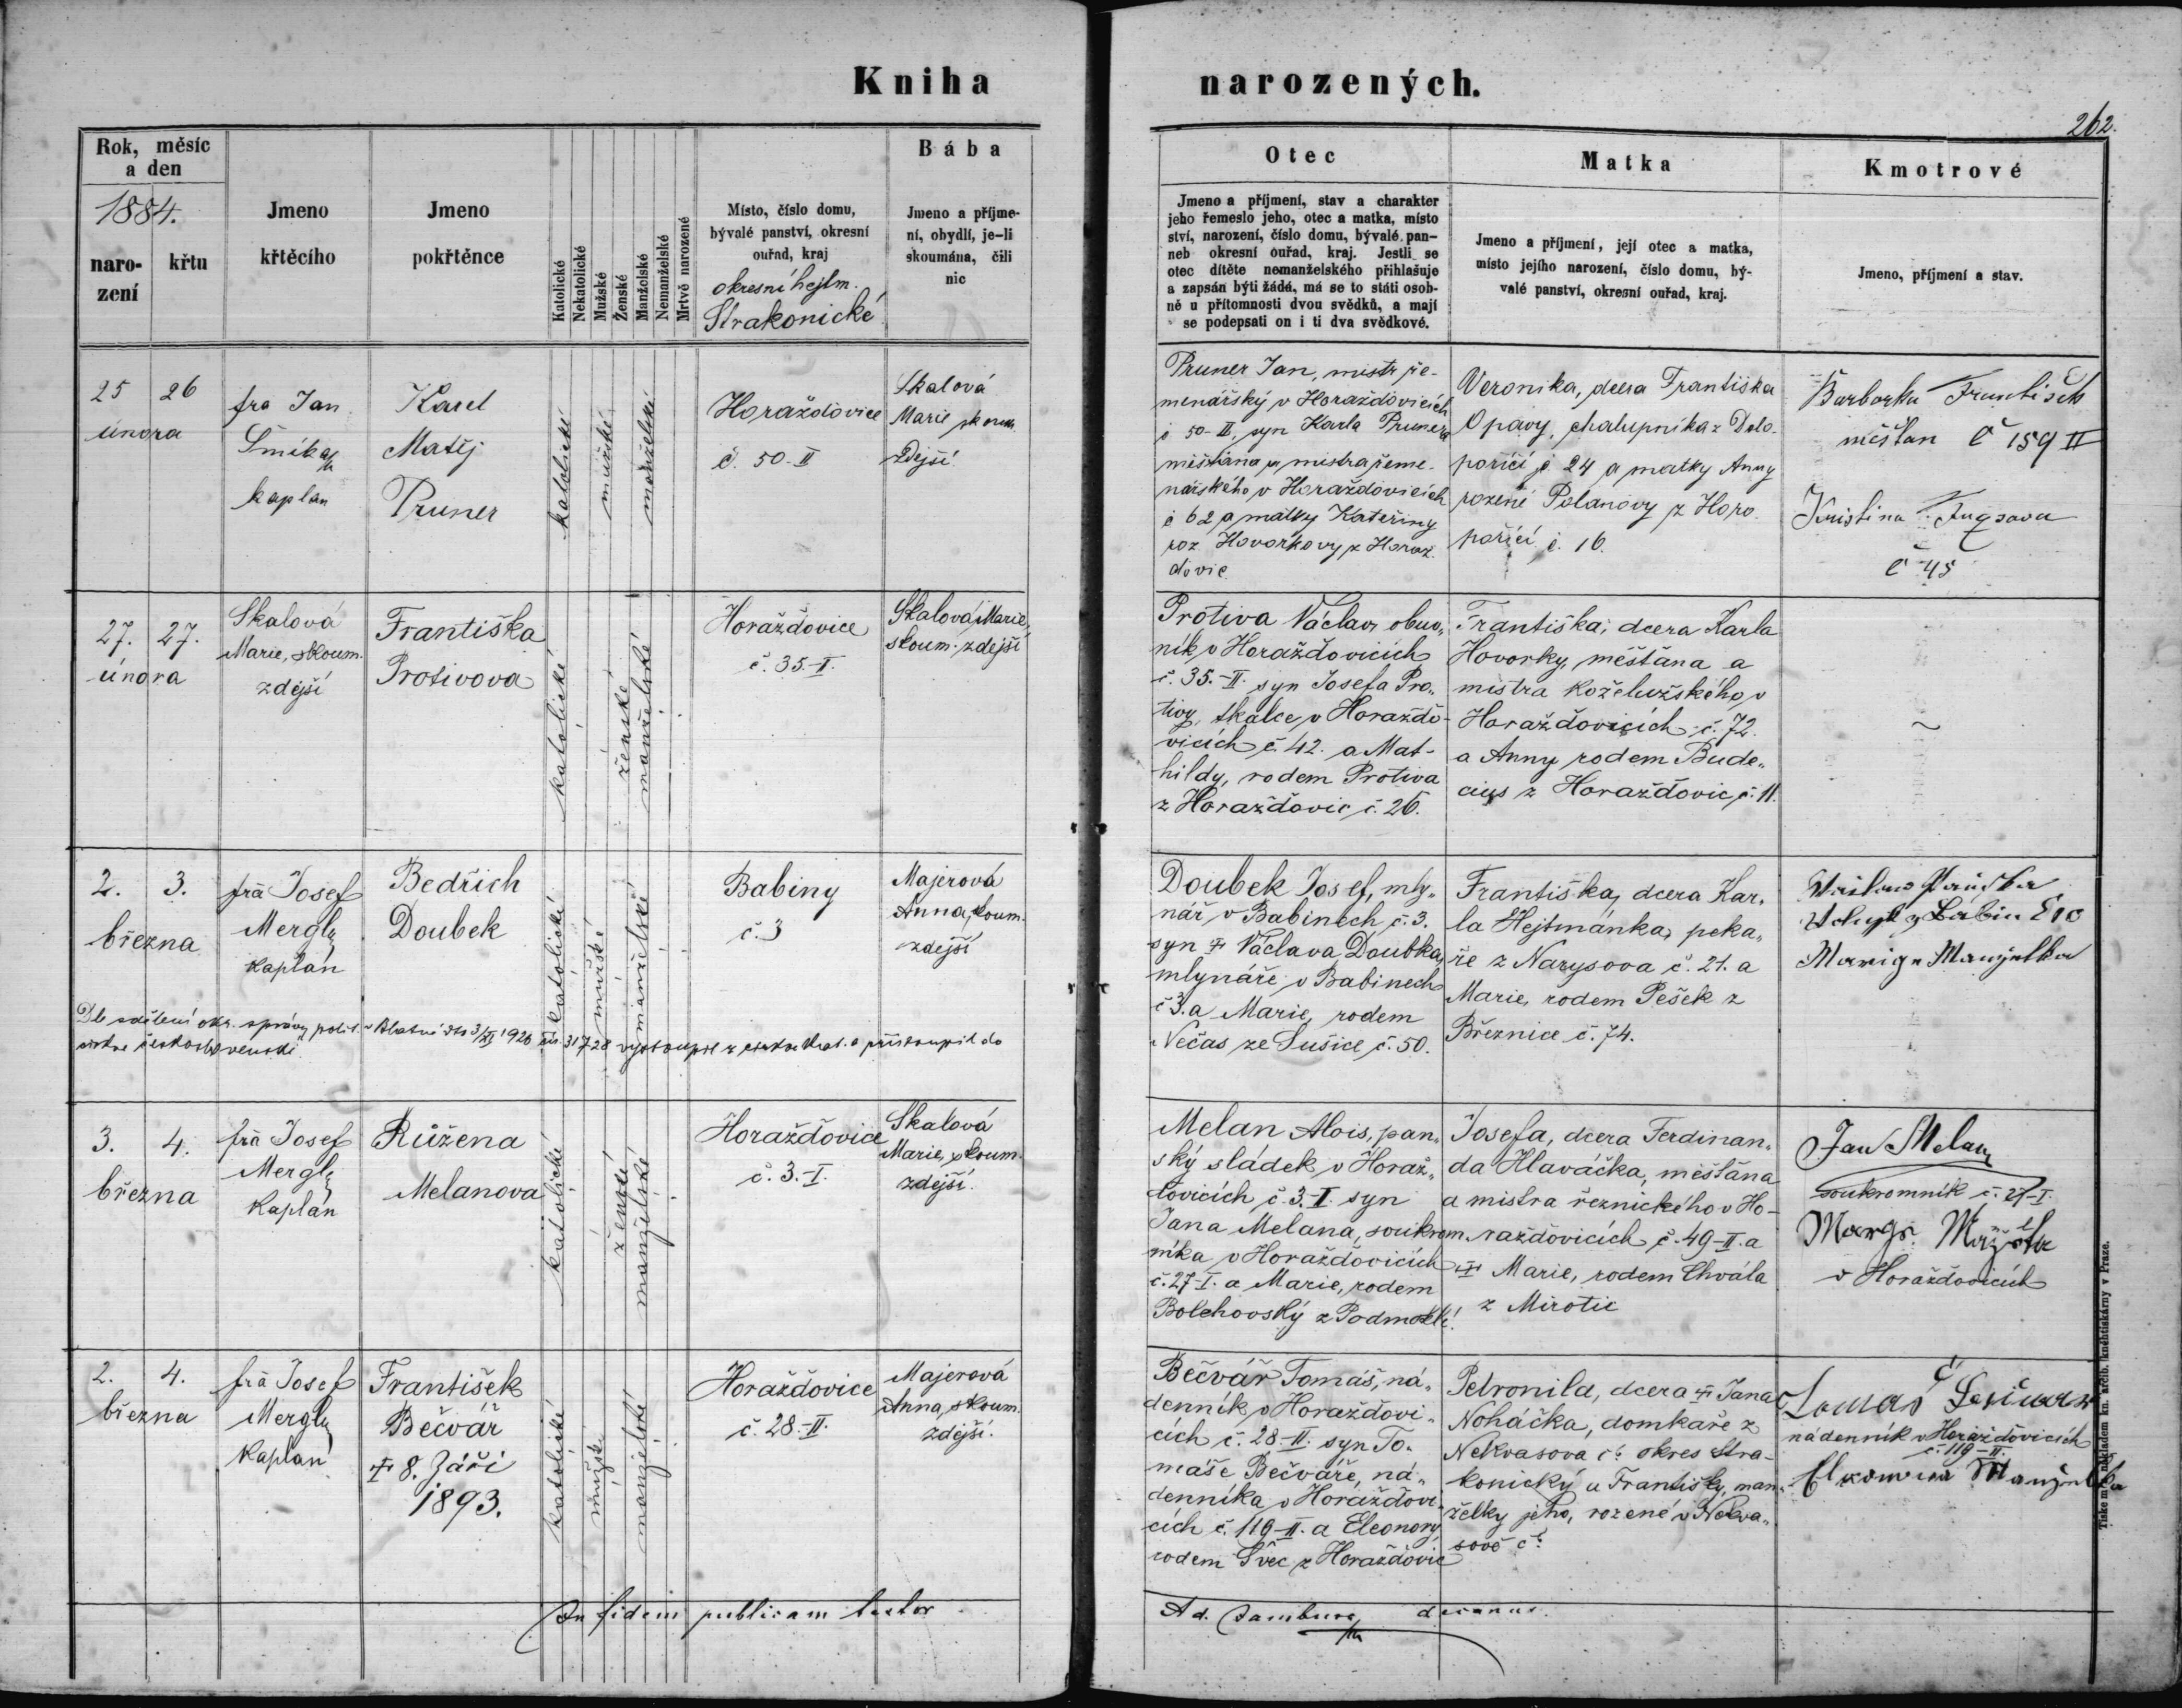 Kniha narozených.
262.
Rok, měsíc
a den
1884.
naro-
zení
křtu
Jmeno
křtěcího
Jmeno
pokřtěnce
Katolické
Nekatolické
Mužské
Ženské
Manželské
Nemanželské
Mrtvě narozené
Místo, číslo domu,
bývalé panství, okresní
ouřad, kraj
okresní hejtm.
Strakonické
Bába
Jmeno a příjme-
ní, obydlí, je-li
skoumána, čili
nic
Otec
Jmeno a příjmení, stav a charakter
jeho řemeslo jeho, otec a matka, místo
ství, narození, číslo domu, bývalé pan-
neb okresní ouřad, kraj. Jestli se
otec dítěte nemanželského přihlašuje
a zapsán býti žádá, má se to státi osob-
ně u přítomnosti dvou svědků, a mají
se podepsati on i ti dva svědkové.
Matka
Jmeno a příjmení, její otec a matka,
místo jejího narození, číslo domu, bý-
valé panství, okresní ouřad, kraj.
Kmotrové
Jmeno, příjmení a stav.
25 26
února
fra Jan
kaplan
Karel
Matěj
Pruner
katolické
mužské
manželské
Horažďovice
č. 50-II
Skalová
Marie skoum.
zdejší
Pruner Jan, mistr ře-
menářský v Horažďovicích
č 50-II, syn Karla Prunera
měšťana a mistra řeme-
nářského v Horažďovicích
č 62 a matky Kateřiny
roz Hovorkovy z Horaz-
dovic
Veronika, dcera Františka
Opavy, chalupníka z Dolo-
poříčí č 24 a matky Anny
rozené Polanovy z Horo
poříčí č. 16.
František
měšťan č 159 II
Kristina
č 45
27. 27.
února
Skalová
Marie, skoum.
zdejší
Františka
Protivova
katolické
ženské
manželské
Horažďovice
č. 35-I.
Skalová Marie,
skoum. zdejší
Protiva Václav obuv-
ník v Horažďovicích
č. 35.-II. syn Josefa Pro-
tivy, tkalce v Horažďo-
vicích č. 42. a Mat-
hildy, rodem Protiva
z Horažďovic č. 26.
Františka, dcera Karla
Hovorky, měšťana a
mistra koželužského v
Horažďovicích č. 72.
a Anny rodem Bude-
cius z Horažďovic č. 11.
~
2. 3.
března
frà Josef
Mergl
kaplan
Bedřich
Doubek
katolické
mužské
manželské
Babiny
č. 3
Majerová
Anna, skoum.
zdejší
Doubek Josef, mly-
nář v Babinech č. 3.
syn + Václava Doubka,
mlynáře v Babinech
č 3. a Marie, rodem
Nečas ze Sušice č. 50.
Františka, dcera Kar-
la Hejtmánka, peka-
ře z Narysova č. 21. a
Marie, rodem Pešek z
Březnice č. 74.
Marie Manželka
Dle sdělení okr. správy polit. v Blatné dto 3/XI 1926 čís. 31728 vystoupil z církve kat. a přistoupil do
církve československé
3. 4.
března
frà Josef
Mergl
kaplan
Růžena
Melanova
katolické
ženské
manželské
Horažďovice
č. 3-I.
Skalová
Marie, skoum.
zdejší.
Melan Alois, pan-
ský sládek v Horaž-
ďovicích č. 3-I. syn
Jana Melana, soukrom-
níka v Horažďovicích
č. 27-I. a Marie, rodem
Bolehovský z Podmoklí.
Josefa, dcera Ferdinan-
da Hlaváčka, měšťana
a mistra řeznického v Ho-
ražďovicích č. 49-II. a
+ Marie, rodem Chvála
z Mirotic
Jan Melan
soukromník č. 27-I.
v Horažďovicích
2. 4.
března
frà Josef
Mergl
kaplan
František
Bečvář
+ 8. Září
1893.
katolické
mužské
manželské
Horažďovice
č. 28.-II.
Majerová
Anna, skoum.
zdejší.
Bečvář Tomáš, ná-
denník v Horažďovi-
cích č. 28-II. syn To-
máše Bečváře, ná-
denníka v Horažďovi-
cích č. 119-II. a Eleonory
rodem Švec z Horažďovic
Petronila, dcera + Jana
Noháčka, domkaře z
Nekvasova č? okres Stra-
konický a Františky, man-
želky jeho, rozené v Nekva-
sově č?
nádenník v Horažďovicích
č. 119-II.
Manželka
In fidem publicam testor
Ad. Jambura decanus.
Tiskem a nákladem kn. arcib. kněhtiskárny v Praze.